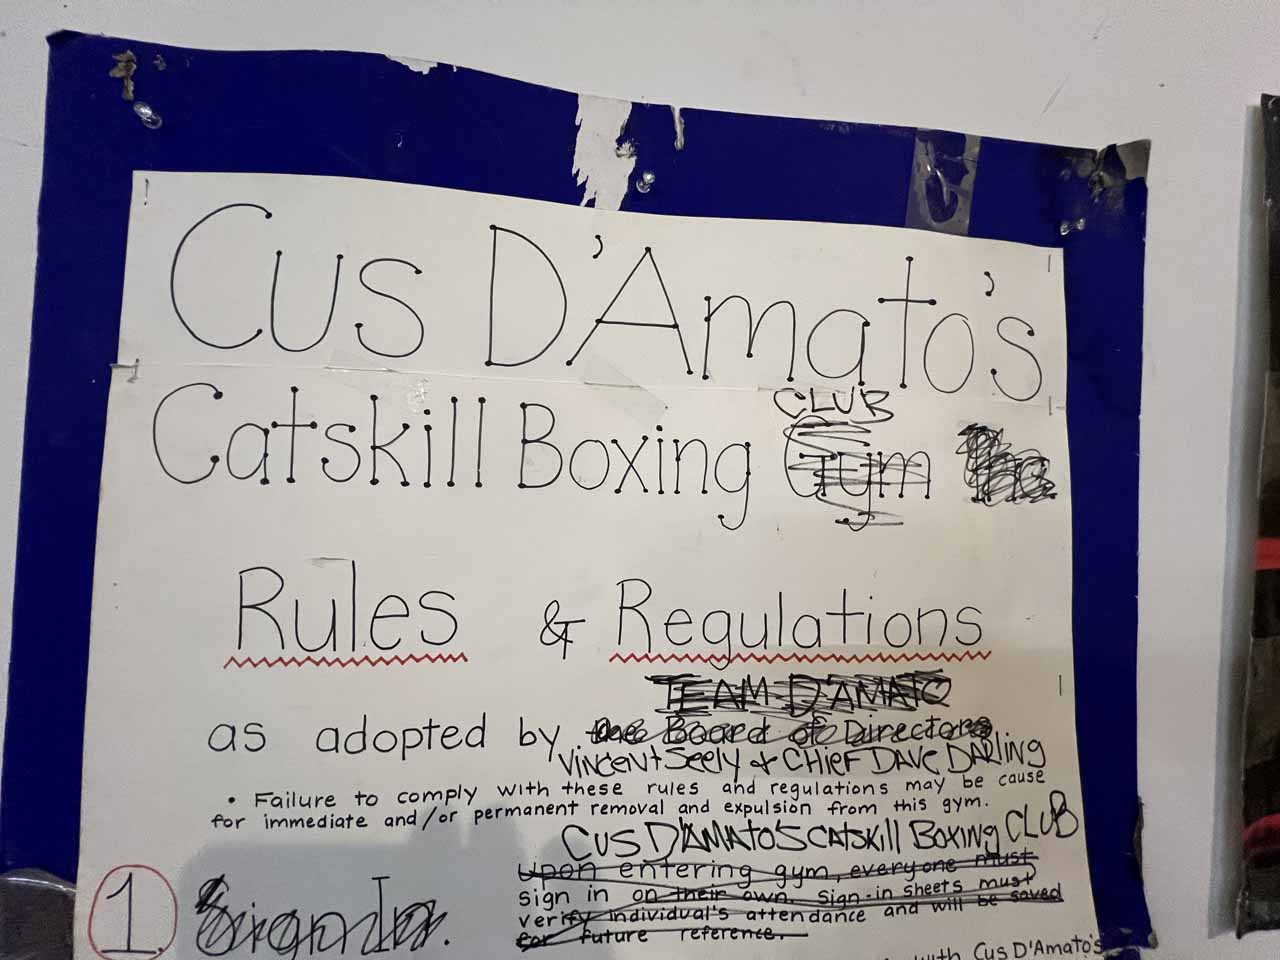 Cus D'Amato's
CLUB
Catskill Boxing Gym
Rules & Regulations
TEAM D'AMATO
as adopted by the Board of Directors
VINCENT SEELY & CHIEF DAVE DARLING
• Failure to comply with these rules and regulations may be cause
for immediate and/or permanent removal and expulsion from this gym.
CUS D'AMATO'S CATSKILL BOXING CLUB
1. Sign In.
Upon entering gym, everyone must
sign in on their own. Sign-in sheets must
verify individual's attendance and will be saved
for future reference.
with Cus D'Amato's